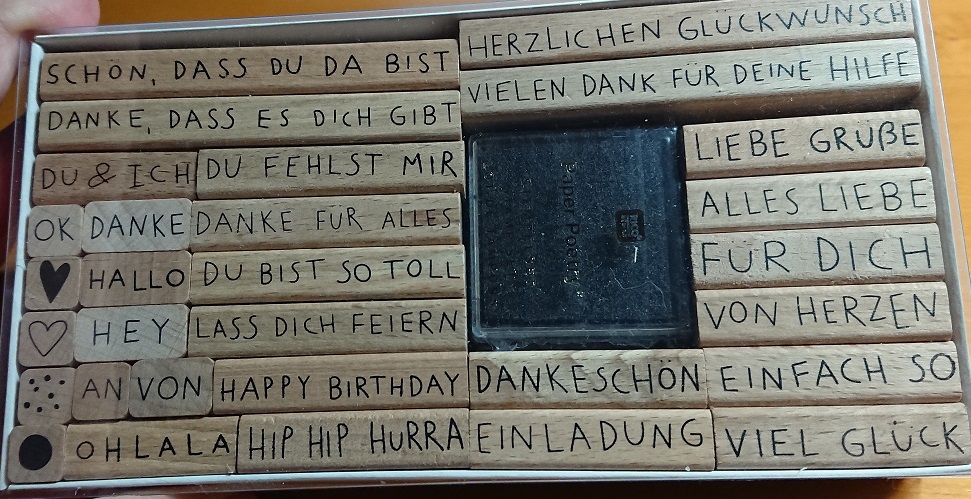 SCHÖN, DASS DU DA BIST
HERZLICHEN GLÜCKWUNSCH
DANKE, DASS ES DICH GIBT
VIELEN DANK FÜR DEINE HILFE
DU & ICH
DU FEHLST MIR
LIEBE GRÜßE
OK
DANKE
DANKE FÜR ALLES
Paper Poetry
ALLES LIEBE
HALLO
DU BIST SO TOLL
FÜR DICH
HEY
LASS DICH FEIERN
VON HERZEN
AN
VON
HAPPY BIRTHDAY
DANKESCHÖN
EINFACH SO
OHLALA
HIP HIP HURRA
EINLADUNG
VIEL GLÜCK